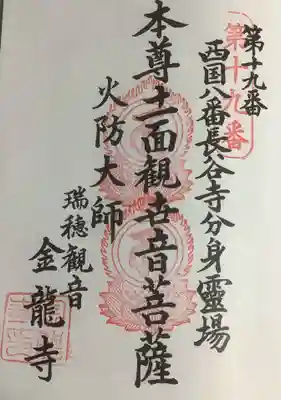 第十九番
第十九番
西国八番長谷寺分身靈場
本尊十一面觀世音菩薩
火防大師
瑞穂観音
金龍寺